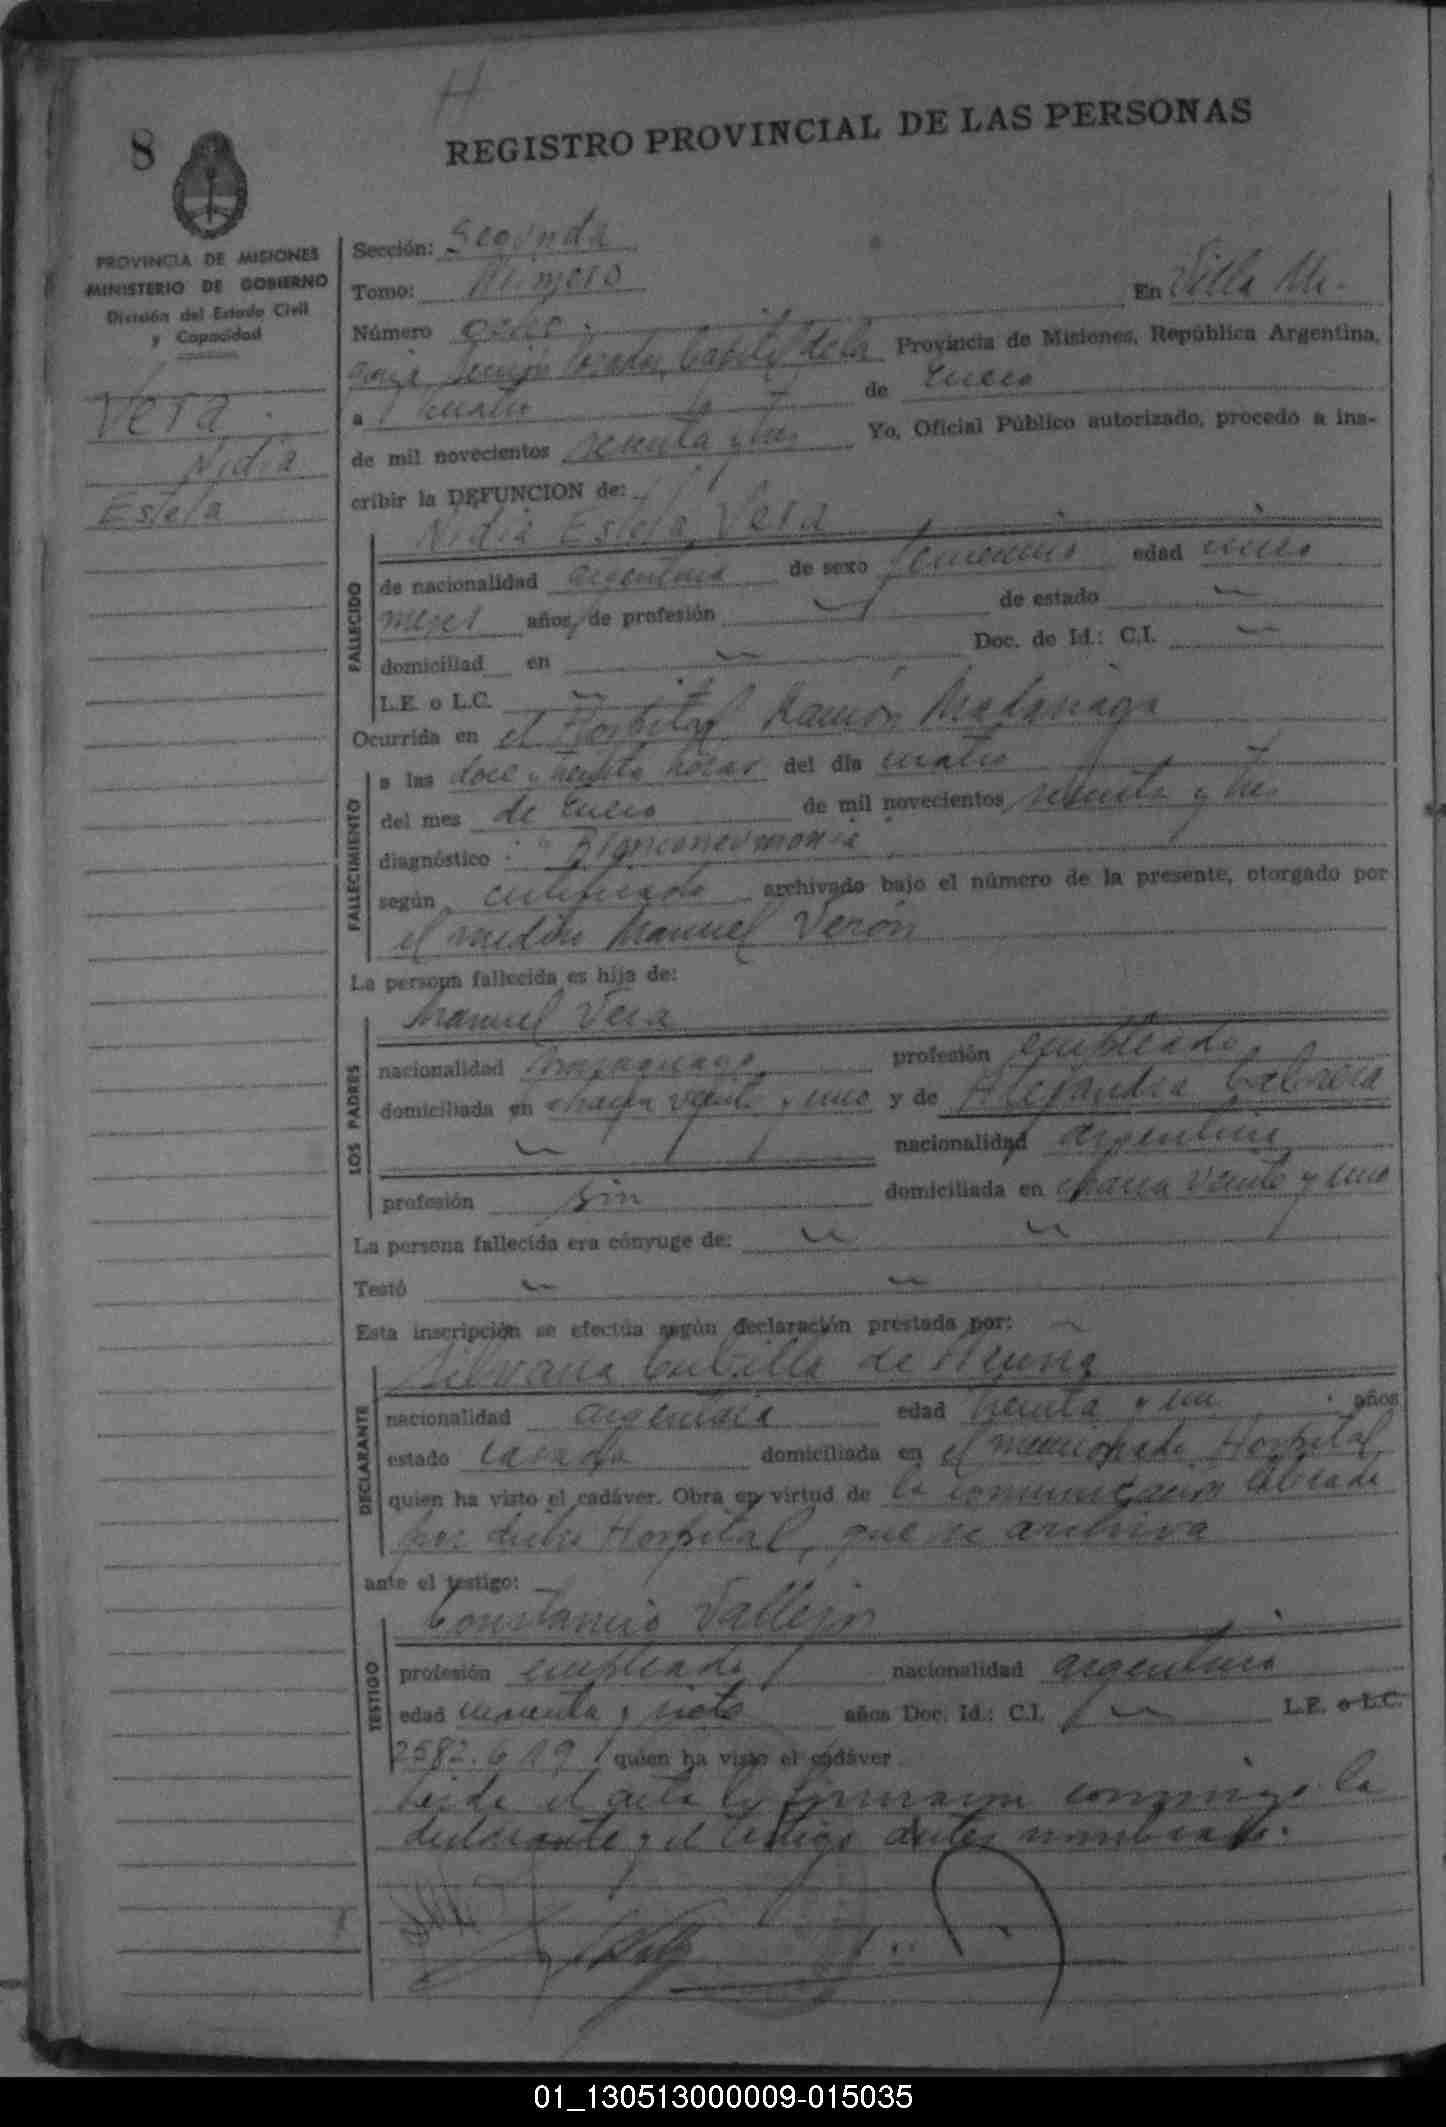 H
8
REGISTRO PROVINCIAL DE LAS PERSONAS
PROVINCIA DE MISIONES
MINISTERIO DE GOBIERNO
División del Estado Civil
y Capacidad
Vera
Nidia
Estela
Sección: Segunda
Tomo: Primero
Número ocho En Villa Ur-
Provincia de Misiones, República Argentina,
a cuatro de Enero
de mil novecientos sesenta y tres Yo, Oficial Público autorizado, procedo a ins-
cribir la DEFUNCION de:
Nidia Estela Vera
FALLECIDO
de nacionalidad argentina de sexo femenino edad cinco
meses años, de profesión de estado
domiciliad en Doc. de Id.: C.I.
L.E. o L.C.
Ocurrida en el Hospital Ramón Madariaga
FALLECIMIENTO
a las doce y treinta horas del día cuatro
del mes de Enero de mil novecientos sesenta y tres
diagnóstico: "Bronconeumonia"
según certificado archivado bajo el número de la presente, otorgado por
el médico Manuel Verón
La persona fallecida es hija de:
Manuel Vera
LOS PADRES
nacionalidad paraguayo profesión empleado
domiciliada en chacra veinte y uno y de Alejandra Cabrera
nacionalidad argentina
profesión sin domiciliada en chacra veinte y uno
La persona fallecida era cónyuge de:
Testó
Esta inscripción se efectúa según declaración prestada por:
Silvana Cubilla de Acuña
DECLARANTE
nacionalidad argentina edad treinta y un años
estado casada domiciliada en el mencionado Hospital
quien ha visto el cadáver. Obra en virtud de la comunicación librada
por dicho Hospital, que se archiva
ante el testigo:
Constancio Vallejos
TESTIGO
profesión empleado nacionalidad argentino
edad y siete años Doc. Id.: C.I. L.E. o L.C.
2582.619 quien ha visto el cadáver
Leída el acta la firmaron conmigo la
declarante y el testigo antes nombrado.
01_130513000009-015035